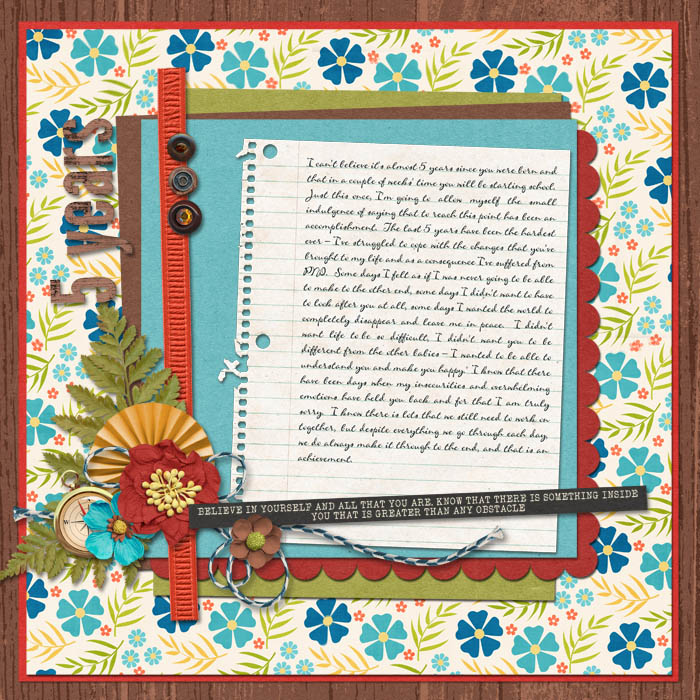 5 years
I can't believe it's almost 5 years since you were born and
that in a couple of weeks' time you will be starting school.
Just this once, I'm going to allow myself the small
indulgence of saying that to reach this point has been an
accomplishment. The last 5 years have been the hardest
ever – I've struggled to cope with the changes that you've
brought to my life and as a consequence I've suffered from
PND. Some days I felt as if I was never going to be able
to make to the other end, some days I didn't want to have
to look after you at all, some days I wanted the world to
completely disappear and leave me in peace. I didn't
want life to be so difficult, I didn't want you to be
different from the other babies – I wanted to be able to
understand you and make you happy' I know that there
have been days when my insecurities and overwhelming
emotions have held you back and for that I am truly
sorry. I know there is lots that we still need to work on
together, but despite everything we go through each day,
we do always make it through to the end, and that is an
achievement.
BELIEVE IN YOURSELF AND ALL THAT YOU ARE. KNOW THAT THERE IS SOMETHING INSIDE
YOU THAT IS GREATER THAN ANY OBSTACLE